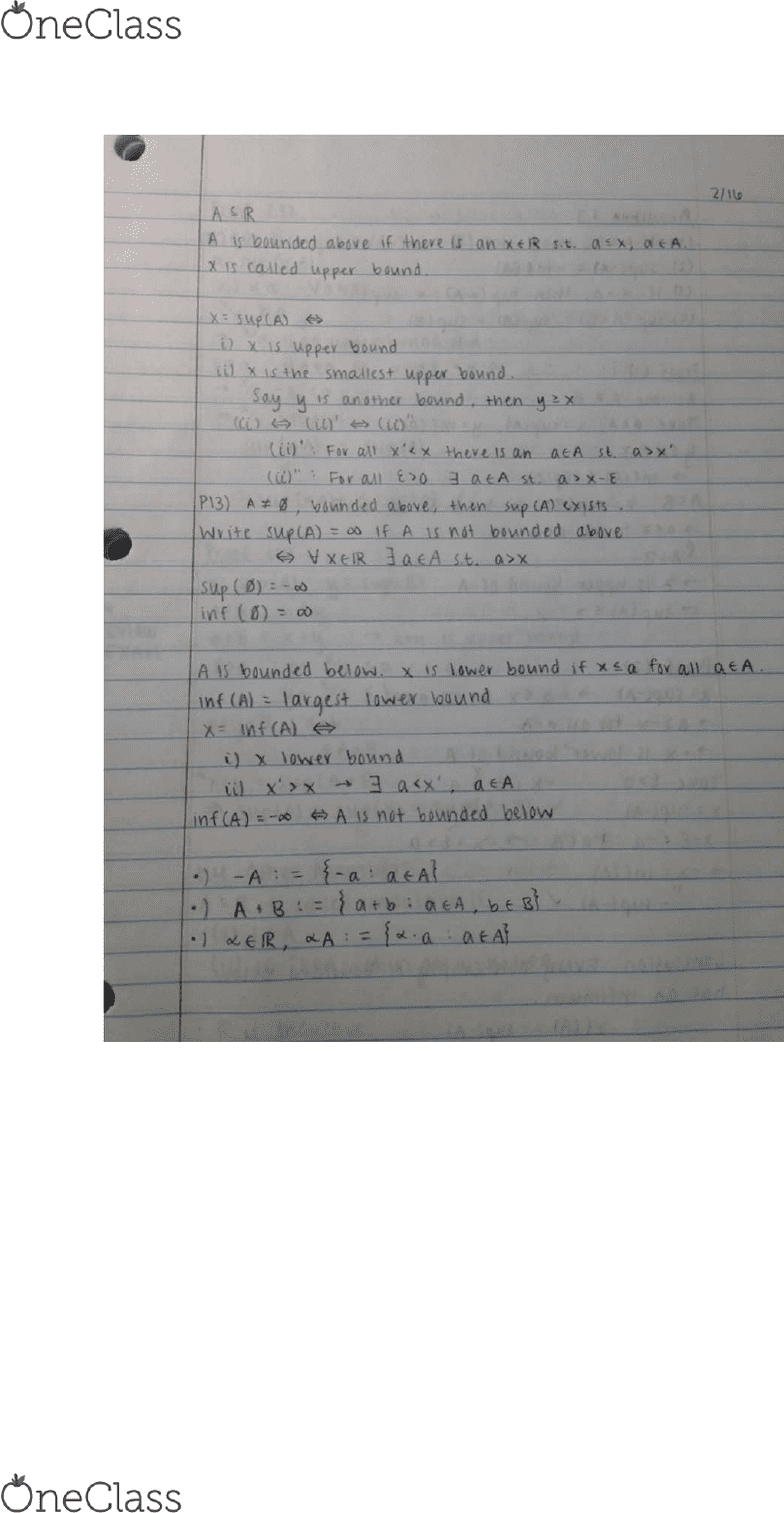 OneClass
2/16
A ⊆ R
A is bounded above if there is an x∈R s.t. a≤x, a∈A.
x is called upper bound.
x = sup(A) ⇔
i) x is upper bound
ii) x is the smallest upper bound.
Say y is another bound, then y ≥ x
(ii) ⇔ (ii)' ⇔ (ii)"
(ii)' : For all x'<x there is an a∈A st. a>x'
(ii)" : For all ε>0 ∃ a∈A st. a>x-ε
P13) A ≠ ∅, bounded above, then sup(A) exists.
Write sup(A) = ∞ if A is not bounded above
⇔ ∀x∈R ∃ a∈A s.t. a>x
sup (∅) = -∞
inf (∅) = ∞
A is bounded below. x is lower bound if x≤a for all a∈A.
inf(A) = largest lower bound
x = inf(A) ⇔
i) x lower bound
ii) x'>x → ∃ a<x', a∈A
inf(A) = -∞ ⇔ A is not bounded below
•) -A := {-a : a∈A}
•) A + B := {a+b : a∈A, b∈B}
•) α∈R, αA := {α·a : a∈A}
OneClass